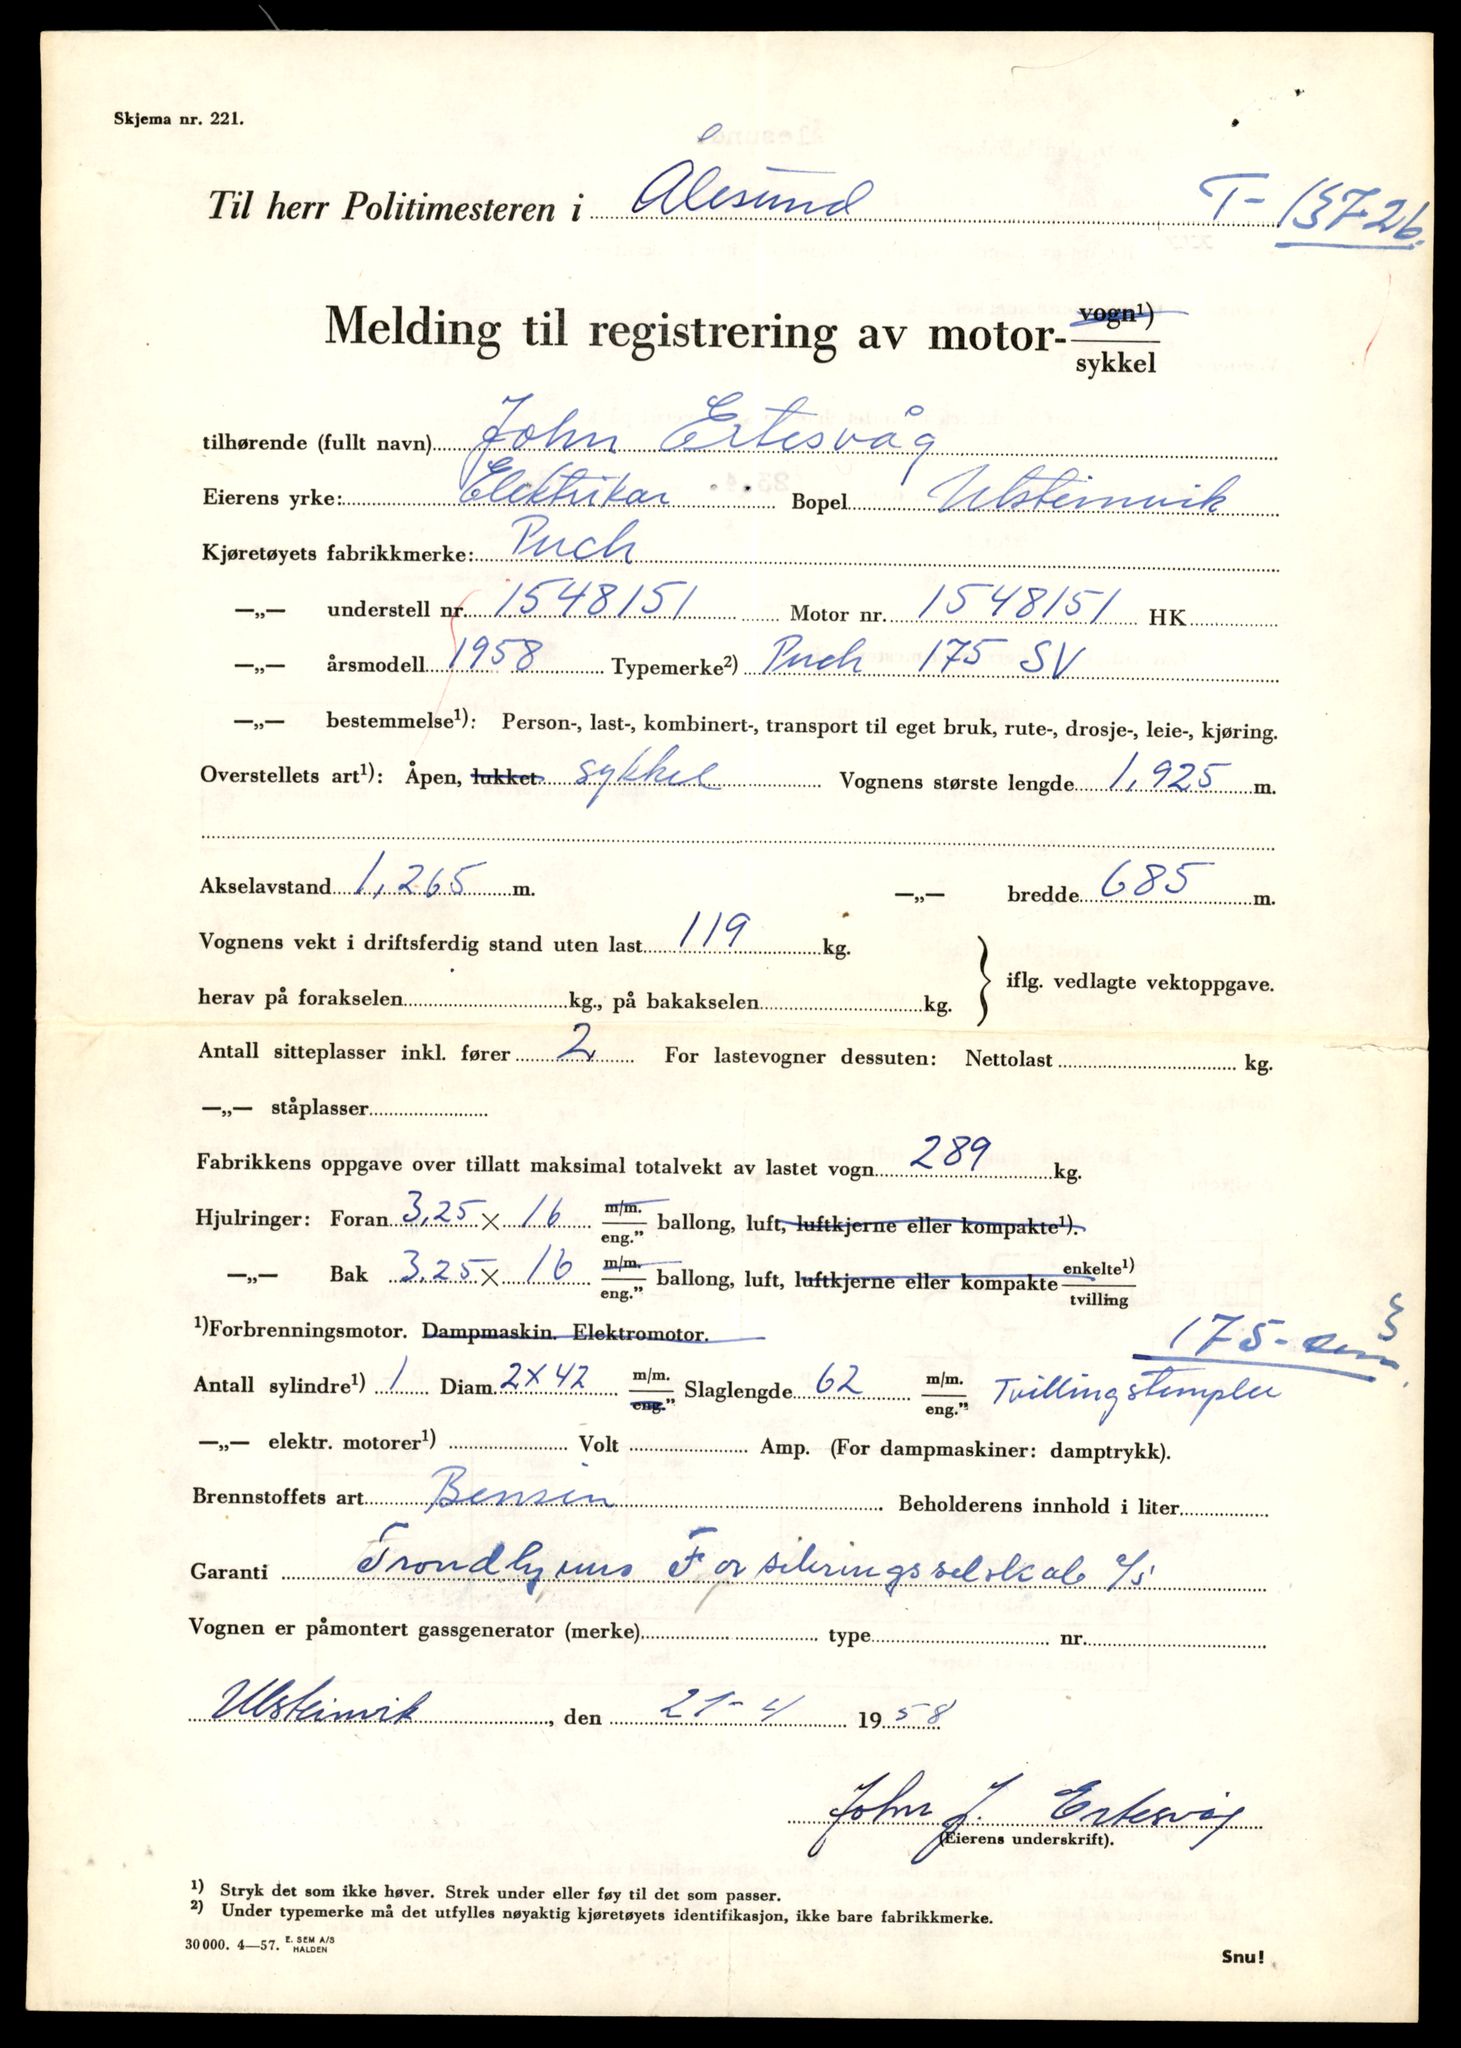 Skjema nr. 221.
Til herr Politimesteren i Ålesund T-13726.
Melding til registrering av motor- vogn¹) sykkel
tilhørende (fullt navn) John Ertesvåg
Eierens yrke: Elektrikar Bopel Ulsteinvik
Kjøretøyets fabrikkmerke: Puch
—„— understell nr. 1548151 Motor nr. 1548151 HK
—„— årsmodell 1958 Typemerke²) Puch 175 SV
—„— bestemmelse¹): Person-, last-, kombinert-, transport til eget bruk, rute-, drosje-, leie-, kjøring.
Overstellets art¹): Åpen, lukket sykkel Vognens største lengde 1,925 m.
Akselavstand 1,265 m. —„— bredde 685 m.
Vognens vekt i driftsferdig stand uten last 119 kg.
herav på forakselen kg., på bakakselen kg. } iflg. vedlagte vektoppgave.
Antall sitteplasser inkl. fører 2 For lastevogner dessuten: Nettolast kg.
—„— ståplasser
Fabrikkens oppgave over tillatt maksimal totalvekt av lastet vogn 289 kg.
Hjulringer: Foran 3,25 × 16 m/m. eng.” ballong, luft, luftkjerne eller kompakte¹).
—„— Bak 3.25 × 16 m/m. eng.” ballong, luft, luftkjerne eller kompakte enkelte¹) tvilling
¹)Forbrenningsmotor. Dampmaskin. Elektromotor. 175-cm³
Antall sylindre¹) 1 Diam. 2×42 m/m. eng.” Slaglengde 62 m/m. eng.” Tvillingstempler
—„— elektr. motorer¹) Volt Amp. (For dampmaskiner: damptrykk).
Brennstoffets art Bensin Beholderens innhold i liter
Garanti Trondhjems Forsikringsselskab a/s
Vognen er påmontert gassgenerator (merke) type nr.
Ulsteinvik, den 21-4 1958
John J. Ertesvåg
(Eierens underskrift).
¹) Stryk det som ikke høver. Strek under eller føy til det som passer.
²) Under typemerke må det utfylles nøyaktig kjøretøyets identifikasjon, ikke bare fabrikkmerke.
30 000. 4—57. E. SEM A/S HALDEN
Snu!